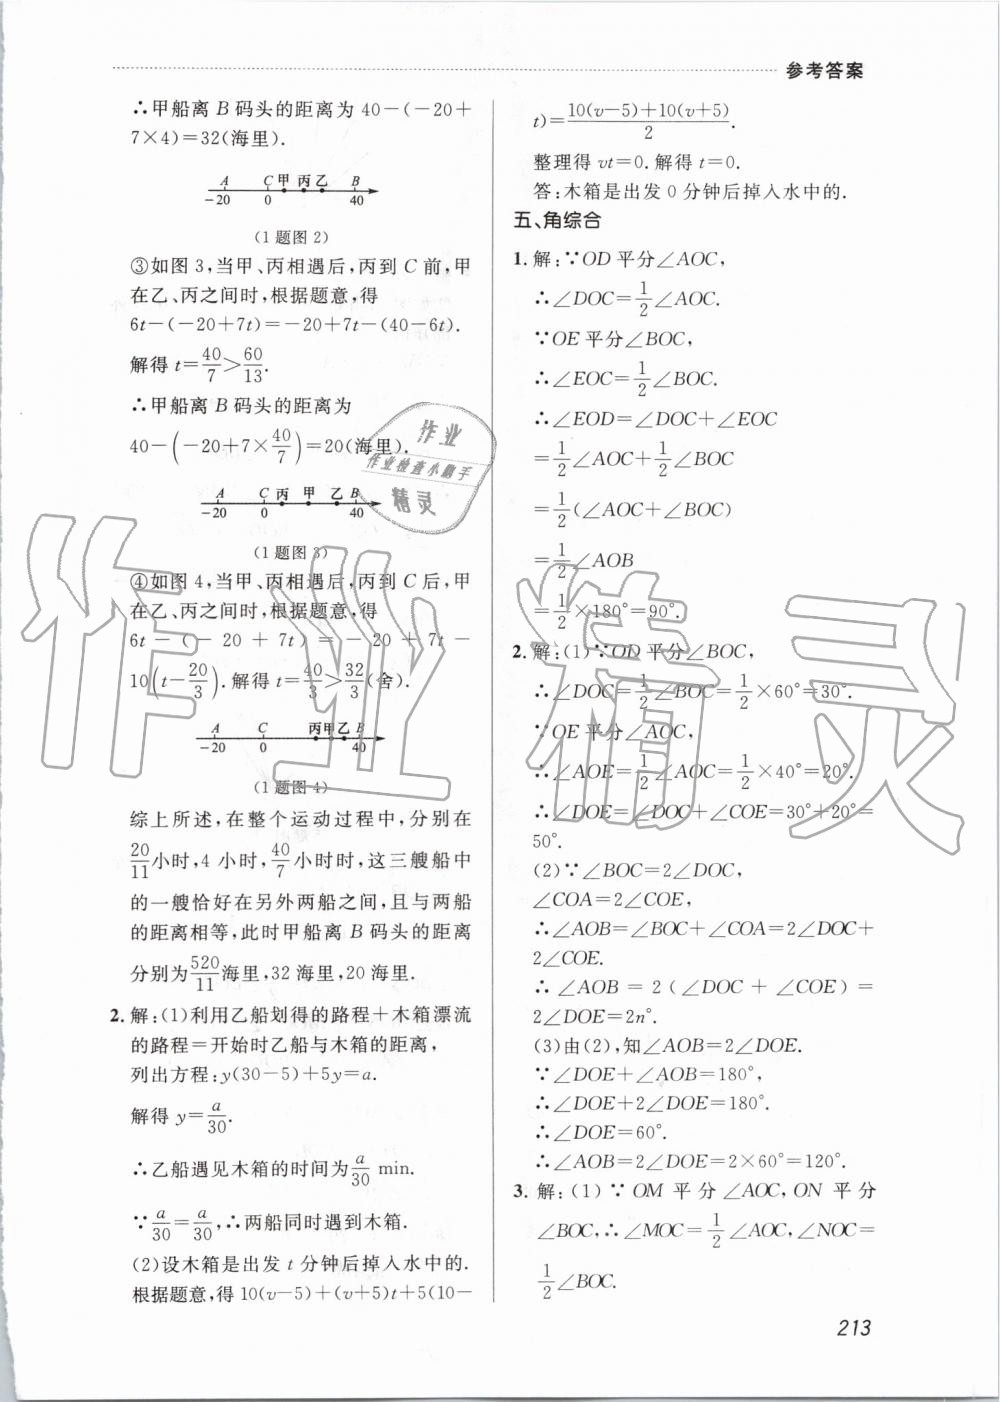 参考答案
∴甲船离 B 码头的距离为 40－(－20＋
7×4)＝32(海里).
A C 甲 丙 乙 B
－20 0 40
(1题图2)
③如图3,当甲、丙相遇后,丙到 C 前,甲
在乙、丙之间时,根据题意,得
6t－(－20＋7t)＝－20＋7t－(40－6t).
解得 t＝40/7＞60/13.
∴甲船离 B 码头的距离为
40－(－20＋7×40/7)＝20(海里).
A C 丙 甲 乙 B
－20 0 40
(1题图3)
④如图4,当甲、丙相遇后,丙到 C 后,甲
在乙、丙之间时,根据题意,得
6t－(－20＋7t)＝－20＋7t－
10(t－20/3).解得 t＝40/3＞32/3(舍).
A C 丙甲乙 B
－20 0 40
(1题图4)
综上所述,在整个运动过程中,分别在
20/11小时,4小时,40/7小时时,这三艘船中
的一艘恰好在另外两船之间,且与两船
的距离相等,此时甲船离 B 码头的距离
分别为520/11海里,32海里,20海里.
2.解:(1)利用乙船划得的路程＋木箱漂流
的路程＝开始时乙船与木箱的距离,
列出方程:y(30－5)＋5y＝a.
解得 y＝a/30.
∴乙船遇见木箱的时间为a/30 min.
∵a/30＝a/30,∴两船同时遇到木箱.
(2)设木箱是出发 t 分钟后掉入水中的.
根据题意,得 10(v－5)＋(v＋5)t＋5(10－
t)＝10(v－5)＋10(v＋5)/2.
整理得 vt＝0.解得 t＝0.
答:木箱是出发0分钟后掉入水中的.
五、角综合
1.解:∵OD平分∠AOC,
∴∠DOC＝1/2∠AOC.
∵OE平分∠BOC,
∴∠EOC＝1/2∠BOC.
∴∠EOD＝∠DOC＋∠EOC
＝1/2∠AOC＋1/2∠BOC
＝1/2(∠AOC＋∠BOC)
＝1/2∠AOB
＝1/2×180°＝90°.
2.解:(1)∵OD平分∠BOC,
∴∠DOC＝1/2∠BOC＝1/2×60°＝30°.
∵OE平分∠AOC,
∴∠AOE＝1/2∠AOC＝1/2×40°＝20°.
∴∠DOE＝∠DOC＋∠COE＝30°＋20°＝
50°.
(2)∵∠BOC＝2∠DOC,
∠COA＝2∠COE,
∴∠AOB＝∠BOC＋∠COA＝2∠DOC＋
2∠COE.
∴∠AOB＝2(∠DOC＋∠COE)＝
2∠DOE＝2n°.
(3)由(2),知∠AOB＝2∠DOE.
∵∠DOE＋∠AOB＝180°,
∴∠DOE＋2∠DOE＝180°.
∴∠DOE＝60°.
∴∠AOB＝2∠DOE＝2×60°＝120°.
3.解:(1)∵OM平分∠AOC,ON平分
∠BOC,∴∠MOC＝1/2∠AOC,∠NOC＝
1/2∠BOC.
213
作业
作业检查小助手
精灵
作业精灵